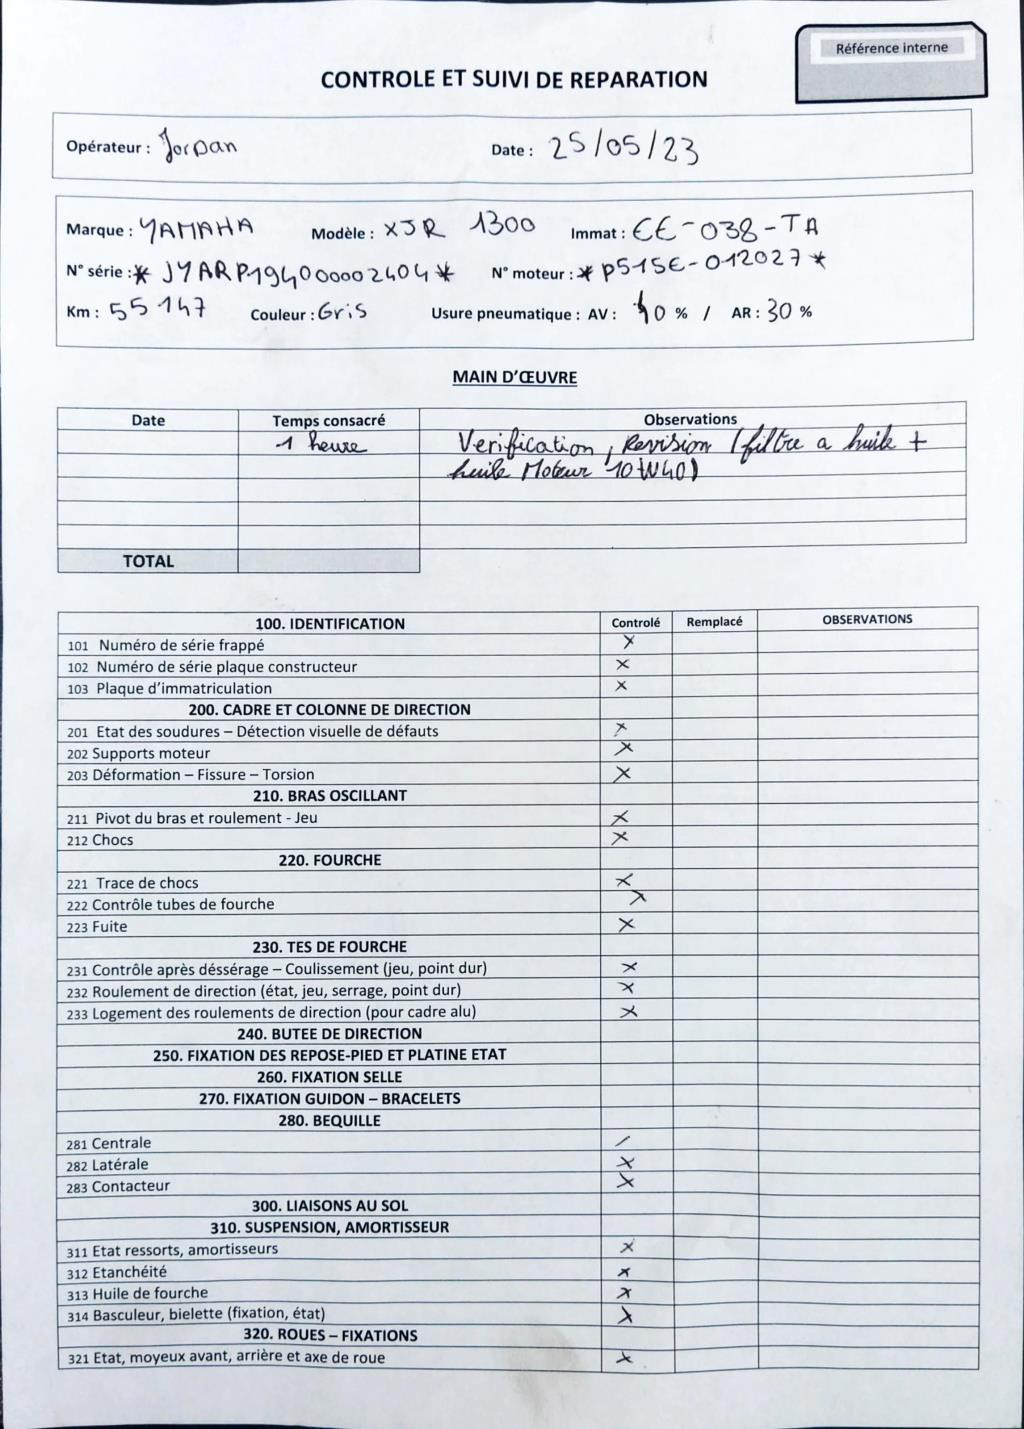 Référence interne
CONTROLE ET SUIVI DE REPARATION
Opérateur : Jordan Date : 25/05/23
Marque : YAMAHA Modèle : XJR 1300 Immat : EE-038-TA
N° série : * JYARP194000002404 * N° moteur : * P515E-012027 *
Km : 55 147 Couleur : Gris Usure pneumatique : AV : 40 % / AR : 30 %
MAIN D'ŒUVRE
Date Temps consacré Observations
1 heure Verification, Revision (filtre a huile +
huile Moteur 10W40)
TOTAL
100. IDENTIFICATION Controlé Remplacé OBSERVATIONS
101 Numéro de série frappé X
102 Numéro de série plaque constructeur X
103 Plaque d'immatriculation X
200. CADRE ET COLONNE DE DIRECTION
201 Etat des soudures – Détection visuelle de défauts X
202 Supports moteur X
203 Déformation – Fissure – Torsion X
210. BRAS OSCILLANT
211 Pivot du bras et roulement - Jeu X
212 Chocs X
220. FOURCHE
221 Trace de chocs X
222 Contrôle tubes de fourche X
223 Fuite X
230. TES DE FOURCHE
231 Contrôle après déssérage – Coulissement (jeu, point dur) X
232 Roulement de direction (état, jeu, serrage, point dur) X
233 Logement des roulements de direction (pour cadre alu) X
240. BUTEE DE DIRECTION
250. FIXATION DES REPOSE-PIED ET PLATINE ETAT
260. FIXATION SELLE
270. FIXATION GUIDON – BRACELETS
280. BEQUILLE
281 Centrale /
282 Latérale X
283 Contacteur X
300. LIAISONS AU SOL
310. SUSPENSION, AMORTISSEUR
311 Etat ressorts, amortisseurs X
312 Etanchéité X
313 Huile de fourche X
314 Basculeur, bielette (fixation, état) X
320. ROUES – FIXATIONS
321 Etat, moyeux avant, arrière et axe de roue X